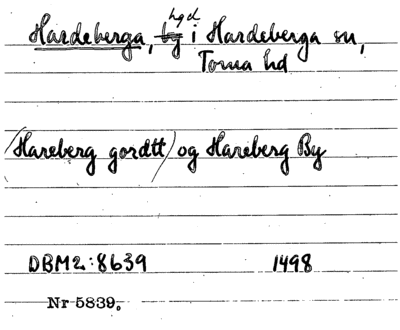 Hardeberga, hgd i Hardeberga sn,
Torna hd
(Hareberg gordtt) og Hareberg By
DBM2:8639 1498
Nr 5839.